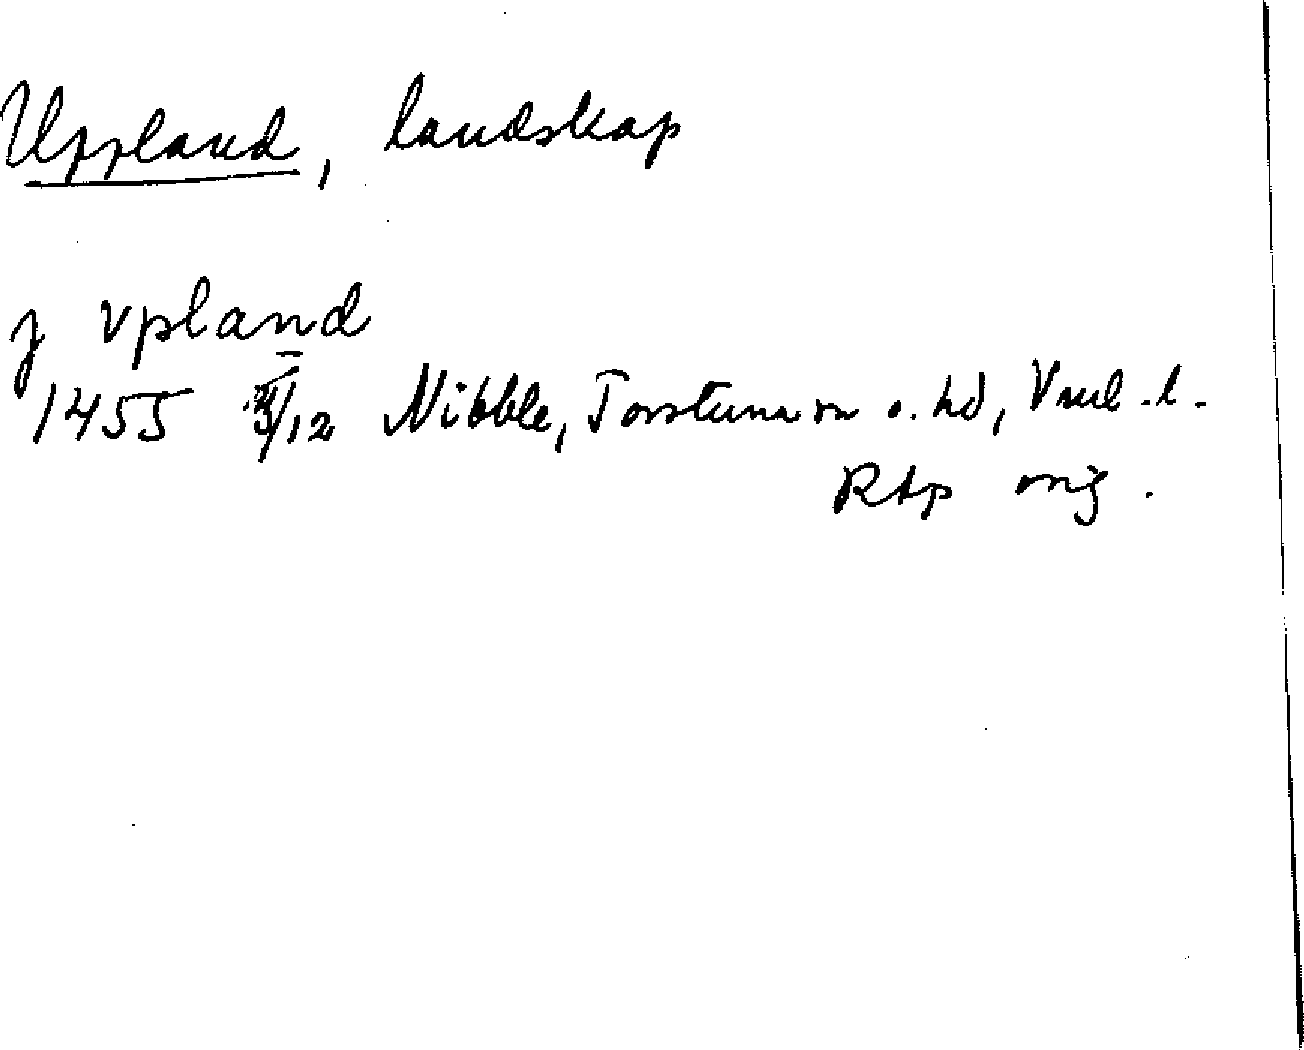 Uppland, landskap
j vpland
1455 /12 Nibble, Torstuna sn o. hd, Vml.l.
RAp orig.